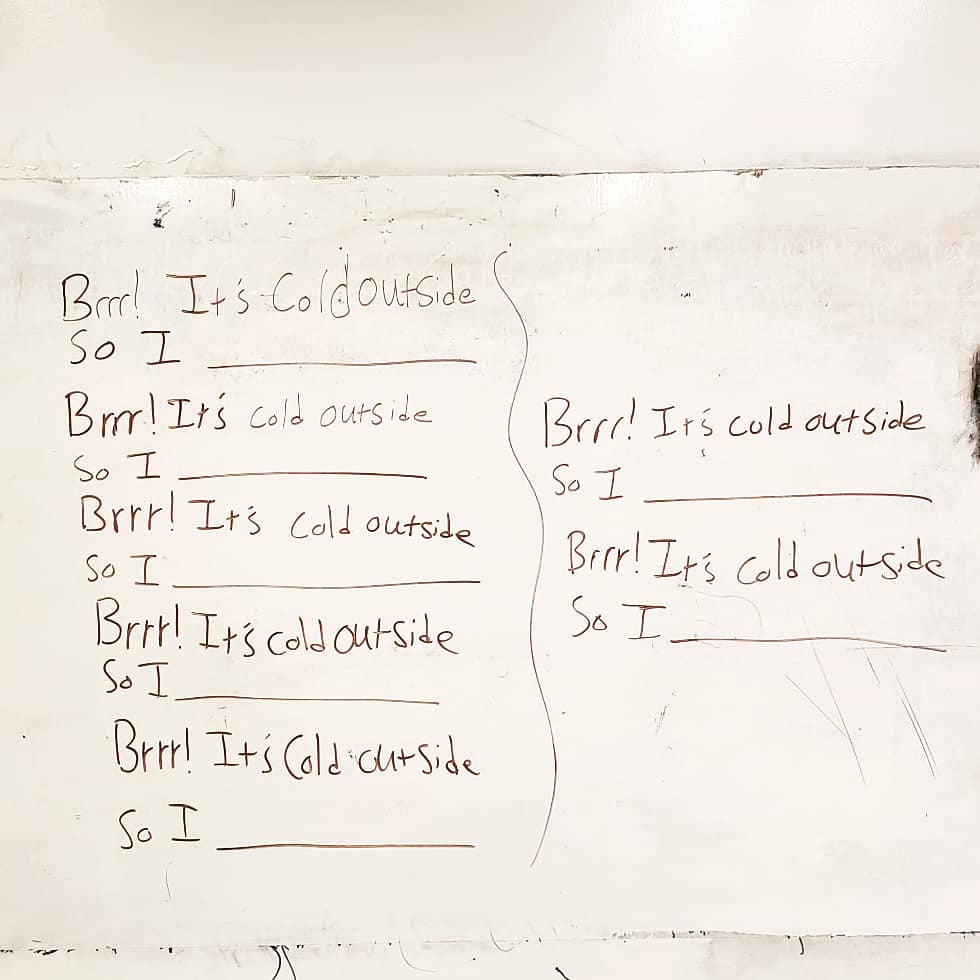 Brrr! It's Cold outside
So I ____________
Brrr! It's cold outside
So I ____________
Brrr! It's cold outside
So I ____________
Brrr! It's cold outside
So I ____________
Brrr! It's Cold outside
So I ____________
Brrr! It's cold outside
So I ____________
Brrr! It's cold outside
So I ____________